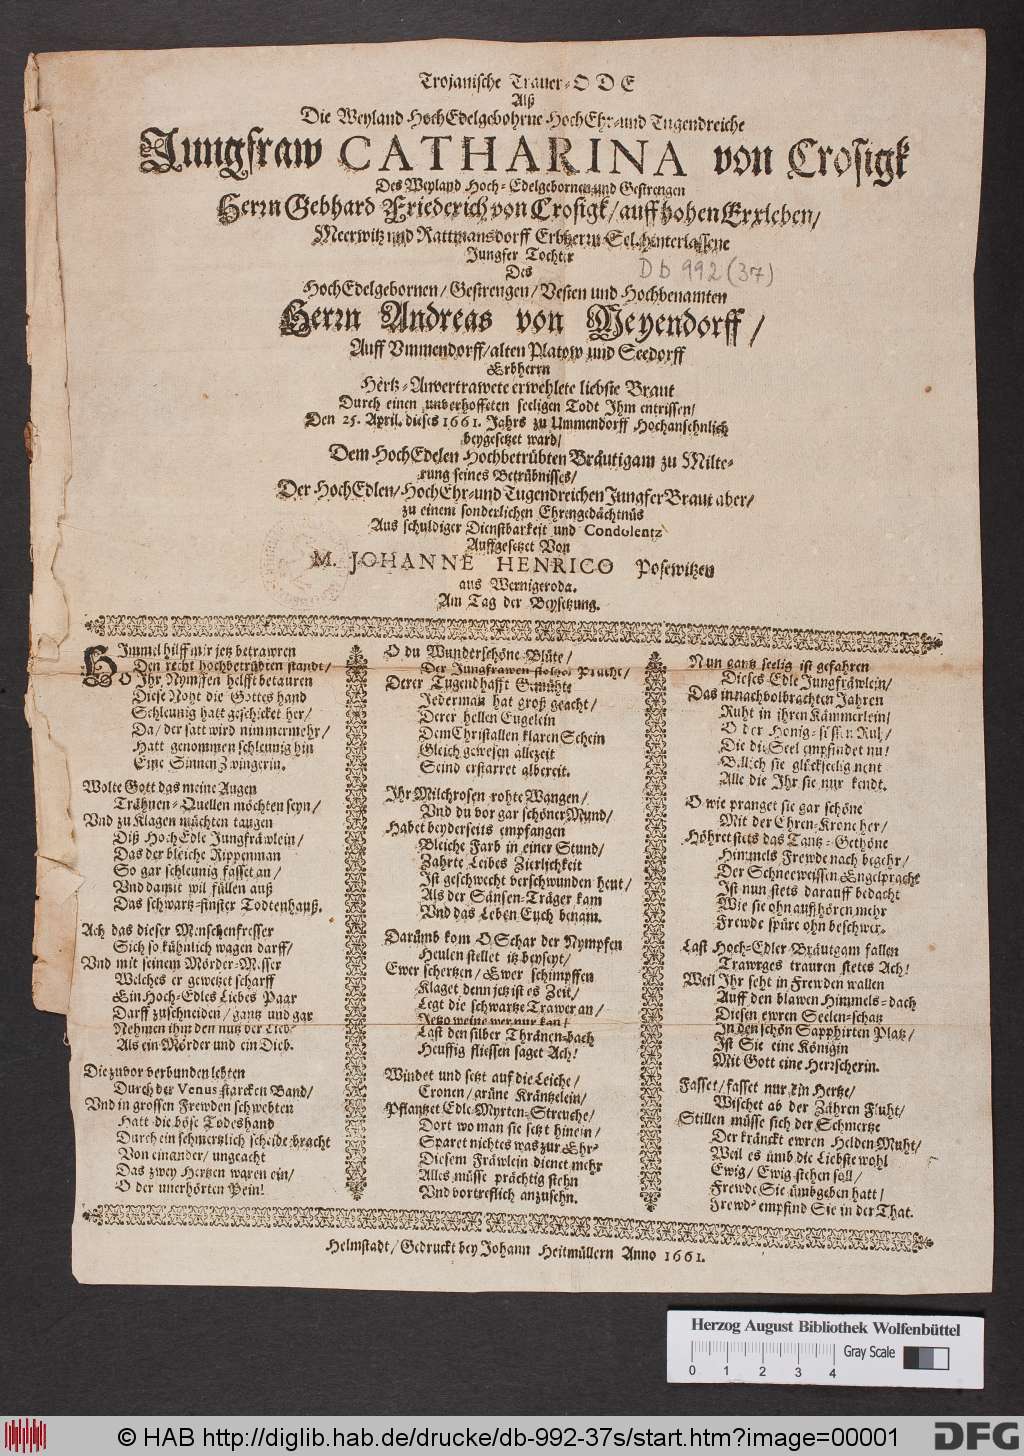 Trojanische Trauer-ODE
Alß
Die Weyland HochEdelgebohrne HochEhr-und Tugendreiche
Jungfraw CATHARINA von Crosigk
Des Weyland Hoch-Edelgebornen und Gestrengen
Herrn Gebhard Friederich von Crosigk/ auff hohen Erxleben/
Meerwitz und Rattmansdorff Erbherrn Sel. hinterlassene
Jungfer Tochter
Db 992 (37)
Des
HochEdelgebornen/ Gestrengen/ Vesten und Hochbenamten
Herrn Andreas von Meyendorff/
Auff Vmmendorff/ alten Platow und Seedorff
Erbherrn
Hertz-Anvertrawete erwehlete liebste Braut
Durch einen unverhoffeten seeligen Todt Ihm entrissen/
Den 25. April. dieses 1661. Jahrs zu Ummendorff Hochansehnlich
beygesetzet ward/
Dem HochEdelen Hochbetrübten Bräutigam zu Milte-
rung seines Betrübnisses/
Der HochEdlen/ HochEhr-und Tugendreichen Jungfer Braut aber/
zu einem sonderlichen Ehrengedächtnüs
Aus schuldiger Dienstbarkeit und Condolentz
Auffgesetzet Von
M. JOHANNE HENRICO Posewitzen
aus Wernigeroda.
Am Tag der Beysetzung.
HImmel hilff mir jetz betrawren
Den recht hochbetrübten standt/
O Ihr Nymffen helfft betauren
Diese Noht die Gottes hand
Schleunig hatt geschicket her/
Da/ der satt wird nimmermehr/
Hatt genommen schleunig hin
Eine Sinnen Zwingerin.
Wolte Gott das meine Augen
Trähnen-Quellen möchten seyn/
Vnd zu Klagen möchten taugen
Diß HochEdle Jungfräwlein/
Das der bleiche Rippenman
So gar schleunig fasset an/
Vnd damit wil füllen auß
Das schwartz-finster Todtenhauß.
Ach das dieser Menschenfresser
Sich so kühnlich wagen darff/
Vnd mit seinem Mörder-Messer
Welches er gewetzet scharff
Ein Hoch-Edles Liebes Paar
Darff zuschneiden/ gantz und gar
Nehmen ihm den nutz der Lieb'
Als ein Mörder und ein Dieb.
Die zuvor verbunden lebten
Durch der Venus starcken Band/
Vnd in grossen Frewden schwebten
Hatt die böse Todeshand
Durch ein schmertzlich scheiden bracht
Von einander/ ungeacht
Das zwey Hertzen waren ein/
O der unerhörten Pein!
O du Wunderschöne Blüte/
Der Jungfrawen stoltzer Pracht/
Derer Tugendhafft Gemühte
Jederman hat groß geacht/
Derer hellen Eugelein
Dem Christallen klaren Schein
Gleich gewesen allezeit
Seind erstarret albereit.
Ihr Milchrosen rohte Wangen/
Vnd du vor gar schöner Mund/
Habet beyderseits empfangen
Bleiche Farb in einer Stund/
Zahrte Leibes Zierlichkeit
Ist geschwecht verschwunden heut/
Als der Sänsen-Träger kam
Vnd das Leben Euch benam.
Darümb kom O Schar der Nympfen
Heulen stellet itz beyseyt/
Ewer schertzen/ Ewer schimpffen
Klaget denn jetz ist es Zeit/
Legt die schwartze Trawer an/
Jetzo weine wer nur kan/
Last den silber Thränen-bach
Heuffig fliessen saget Ach!
Windet und setzt auf die Leiche/
Cronen/ grüne Kräntzelein/
Pflantzet Edle Myrten-Streuche/
Dort wo man sie setzt hinein/
Sparet nichtes was zur Ehr'
Diesem Fräwlein dienet mehr
Alles müsse prächtig stehn
Vnd vortreflich anzusehn.
Nun gantz seelig ist gefahren
Dieses Edle Jungfräwlein/
Das in nachvolbrachten Jahren
Ruht in ihren Kämmerlein/
O der Honig-süssen Ruh/
Die die Seel empfindet nu!
Billich sie glückseelig nent
Alle die Ihr sie nur kendt.
O wie pranget sie gar schöne
Mit der Ehren-Krone her/
Höhret stets das Tantz-Gethöne
Himmels Frewde nach begehr/
Der Schneeweissen Engelpracht
Ist nun stets darauff bedacht
Wie sie ohn auffhören mehr
Frewde spüre ohn beschwer.
Last Hoch-Edler Bräutgam fallen
Trawrges trauren stetes Ach!
Weil Ihr seht in Frewden wallen
Auff den blawen Himmels-dach
Diesen ewren Seelen-schatz
In den schön Sapphirten Platz/
Ist Sie eine Königin
Mit Gott eine Herrscherin.
Fasset/ fasset nur ein Hertze/
Wischet ab der Zähren Fluht/
Stillen müsse sich der Schmertze
Der kränckt ewren Helden Muht/
Weil es ümb die Liebste wohl
Ewig/ Ewig stehen soll/
Frewde Sie ümbgeben hatt/
Frewd' empfind Sie in der That.
Helmstadt/ Gedruckt bey Johann Heitmüllern Anno 1661.
Herzog August Bibliothek Wolfenbüttel
0 1 2 3 4 Gray Scale
© HAB http://diglib.hab.de/drucke/db-992-37s/start.htm?image=00001
DFG